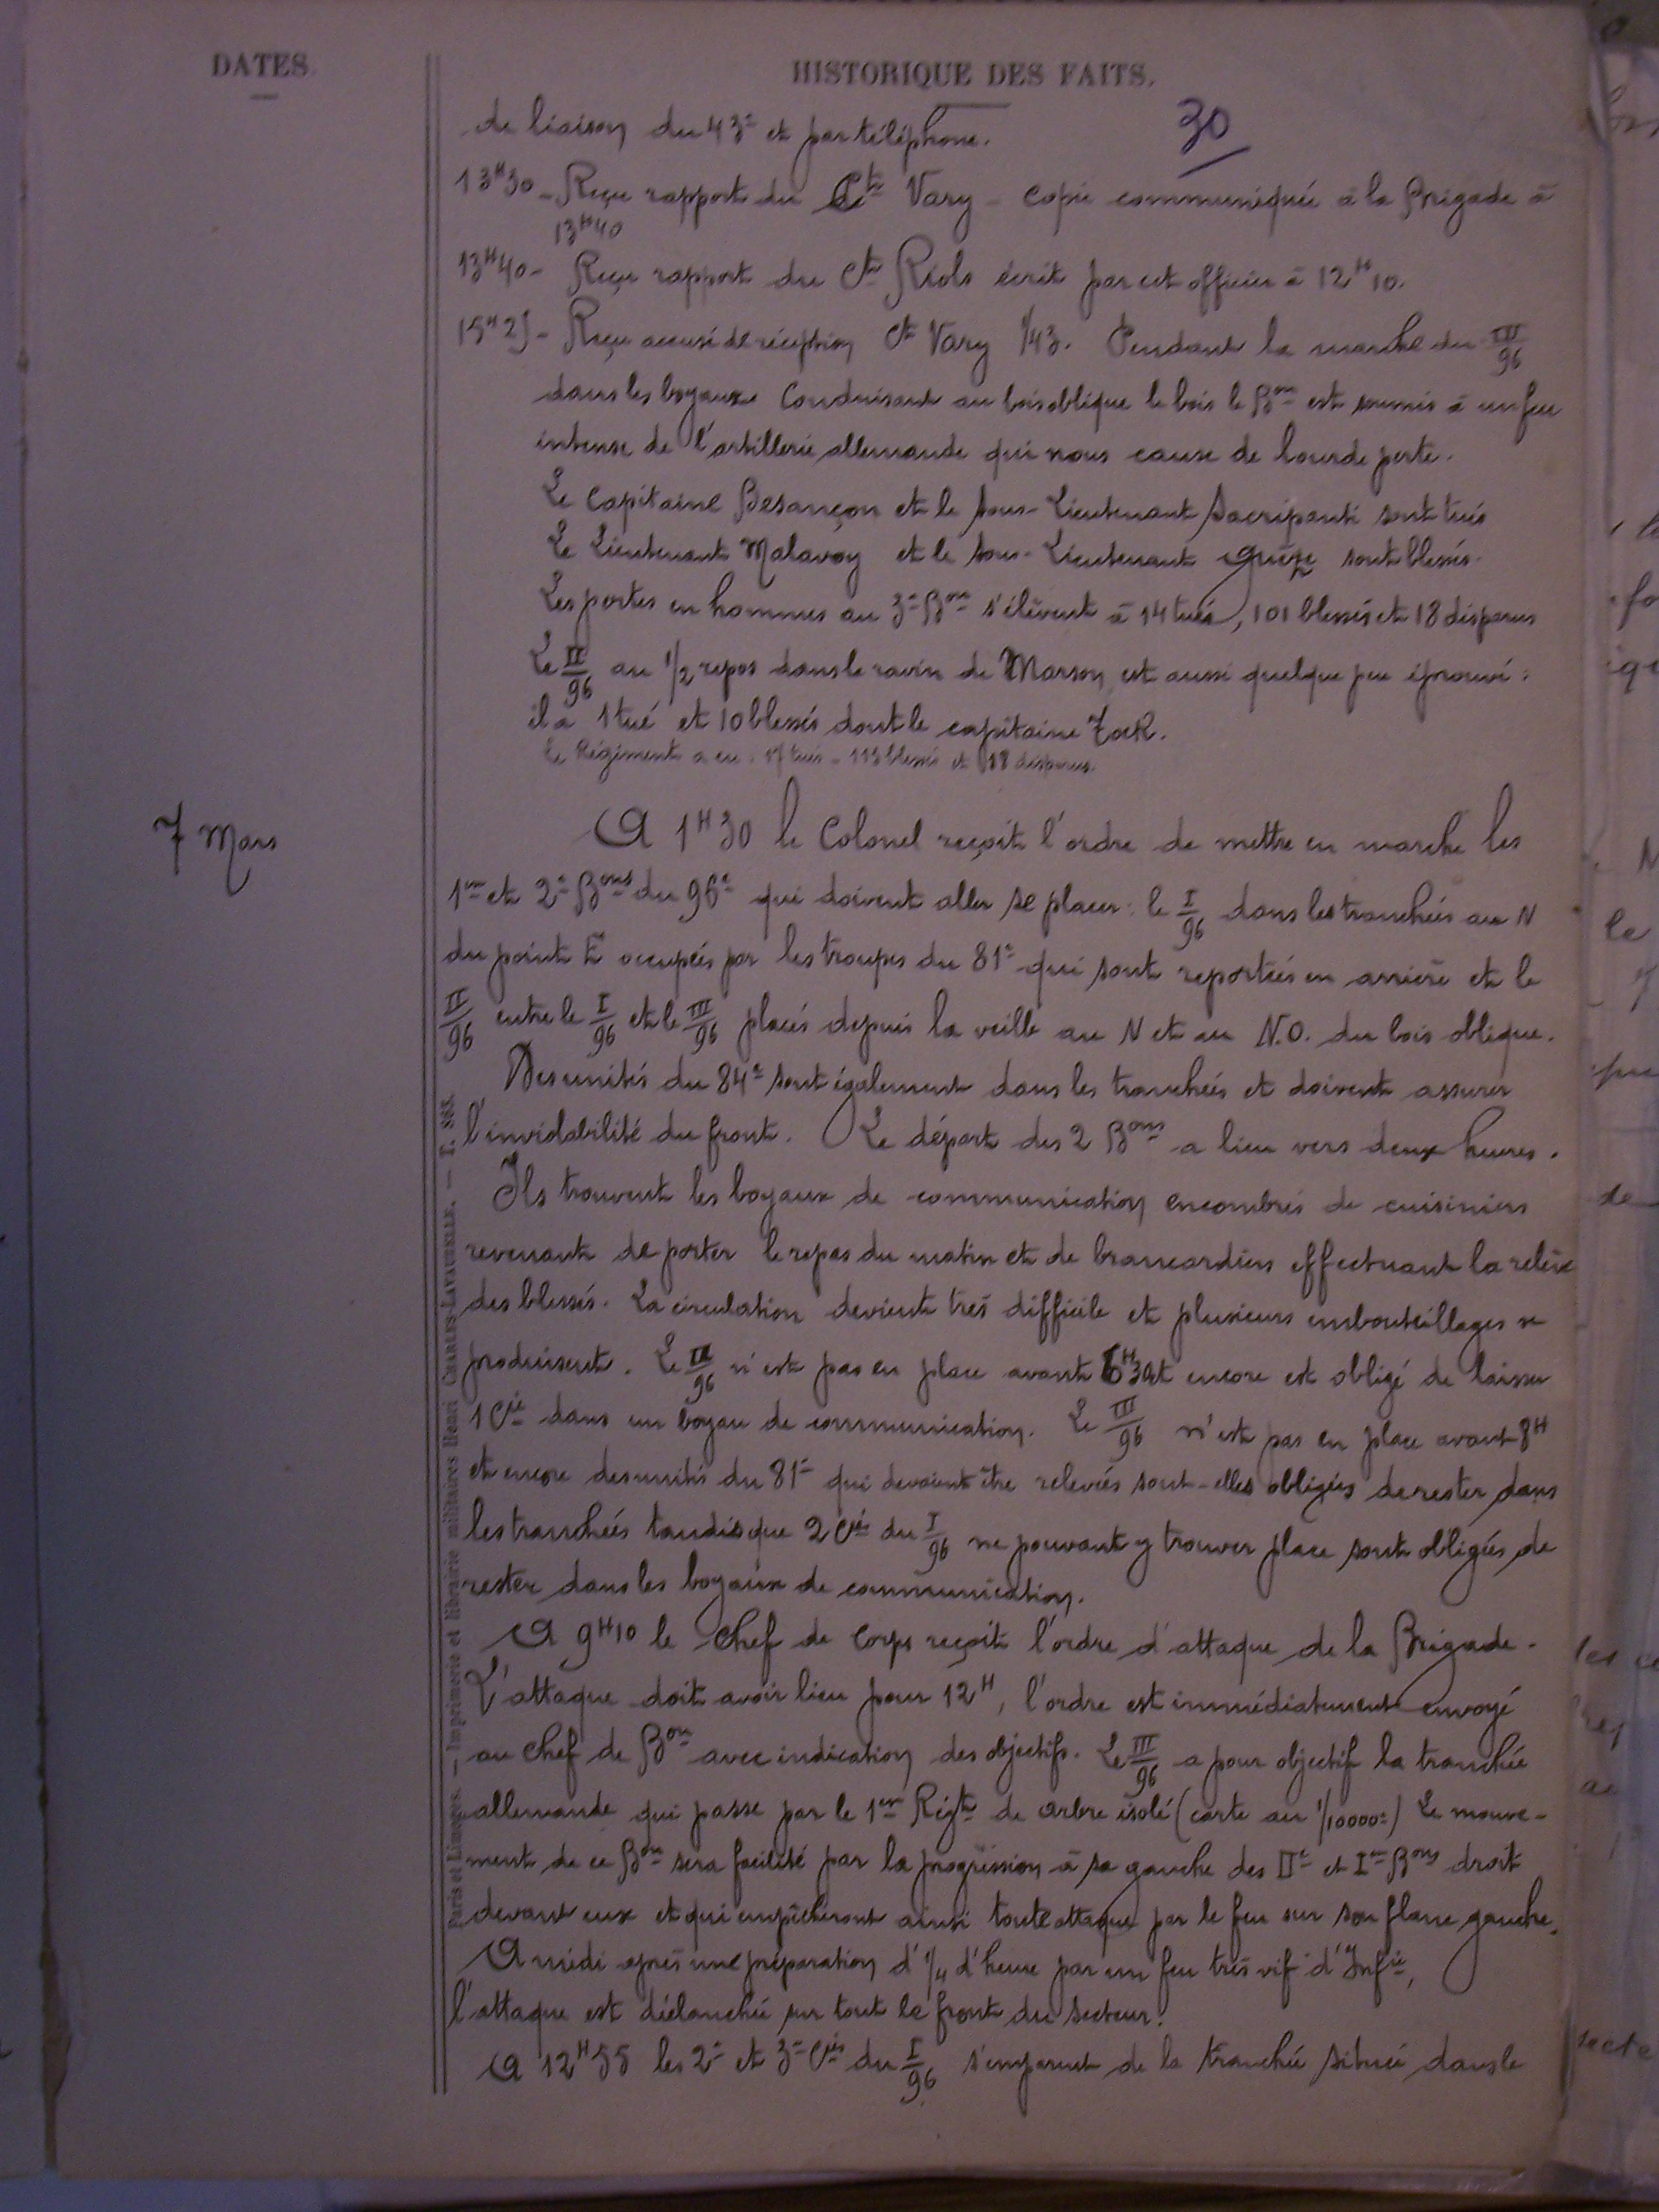 DATES.
HISTORIQUE DES FAITS.
30
de liaison du 43e et par téléphone.
13H30 - Reçu rapport du Ct Vary - copie communiquée à la Brigade à
13H40
13H40 - Reçu rapport du Ct Riols écrit par cet officier à 12H10.
15H25 - Reçu accusé de réception Ct Vary 1/43. Pendant la marche du III/96
dans les boyaux conduisant au bois oblique le bois le Bon est soumis à un feu
intense de l'artillerie allemande qui nous cause de lourde perte.
Le Capitaine Besançon et le sous-Lieutenant Sacripanti sont tués
Le Lieutenant Malavoy et le sous-Lieutenant sont blessés.
Les pertes en hommes au 3e Bon s'élèvent à 14 tués, 101 blessés et 18 disparus
Le II/96 au 1/2 repos dans le ravin de Marson est aussi quelque peu éprouvé :
il a 1 tué et 10 blessés dont le capitaine
Le Régiment a eu : 17 tués - 113 blessés et 18 disparus.
7 Mars
A 1H30 le Colonel reçoit l'ordre de mettre en marche les
1er et 2e Bons du 96e qui doivent aller se placer : le I/96 dans les tranchées au N
du point E occupées par les troupes du 81e qui sont reportées en arrière et le
II/96 entre le I/96 et le III/96 placés depuis la veille au N et au N.O. du bois oblique.
Des unités du 84e sont également dans les tranchées et doivent assurer
l'inviolabilité du front. Le départ des 2 Bons a lieu vers deux heures.
Ils trouvent les boyaux de communication encombrés de cuisiniers
revenant de porter le repas du matin et de brancardiers effectuant la relève
des blessés. La circulation devient très difficile et plusieurs embouteillages se
produisent. Le II/96 n'est pas en place avant 6H30 et encore est obligé de laisser
1 Cie dans un boyau de communication. Le III/96 n'est pas en place avant 8H
et encore des unités du 81e qui devaient être relevées sont-elles obligées de rester dans
les tranchées tandis que 2 Cies du I/96 ne pouvant y trouver place sont obligées de
rester dans les boyaux de communication.
A 9H10 le Chef de Corps reçoit l'ordre d'attaque de la Brigade.
L'attaque doit avoir lieu pour 12H, l'ordre est immédiatement envoyé
au chef de Bon avec indication des objectifs. Le III/96 a pour objectif la tranchée
allemande qui passe par le 1er Rigt de arbre isolé (carte au 1/10000e) Le mouve-
ment de ce Bon sera facilité par la progression à sa gauche des IIe et Ier Bons droit
devant eux et qui empêcheront ainsi toute attaque par le feu sur son flanc gauche.
A midi après une préparation d'1/4 d'heure par un feu très vif d'Infie,
l'attaque est déclanchée sur tout le front du secteur.
A 12H55 les 2e et 3e Cies du I/96 s'emparent de la tranchée située dans le
Paris et Limoges. — Imprimerie et librairie militaires Henri CHARLES-LAVAUZELLE. — E. 883.